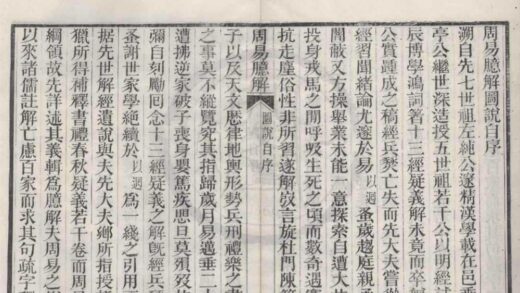 周易臆解圖說自序
溯自先七世祖左純公邃精漢學載在邑乘
亭公繼世深造授五世祖若千公以明經
辰博學鴻詞著十三經疑義解未竟而卒
公實踵成之稿經兵燹亡失而先大夫嘗
經習聞緒論尤邃於易以迴蚤歲趨庭親
聞嚴又方操舉業未能一意探索自遭大
投身戎馬之閒呼吸生死之頃而數奇遇
抗走塵俗性非所習遂解敂言旋杜門陳
周易臆解
圖說自序
子以及天文歷律地輿形勢兵刑禮樂之
之事莫不縱覽究其指歸歲月易邁垂二
遭拂逆家破子喪身嬰篤疾思旦莫殞歿
彌自刻勵囘念十三經疑義之解旣經兵
蚤謝世家學絕續於以迴爲一綫之引用
據先世解經遺說與夫先大夫鄉所指授
獵所得補釋書禮春秋疑義若干卷而周
綱領故先詳述其義輯爲臆解夫周易之
以來諸儒註解亡慮百家而求其句疏字